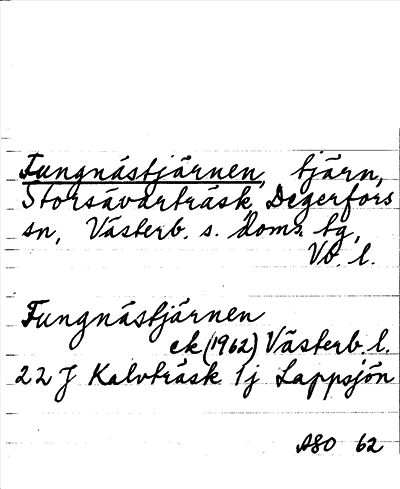 Tungnästjärnen, tjärn,
Storsävarträsk Degerfors
sn, Västerb. s. doms. tg,
Vb. l.
Tungnästjärnen
ek (1962) Västerb. l.
22 J Kalvträsk 1j Lappsjön
ASO 62